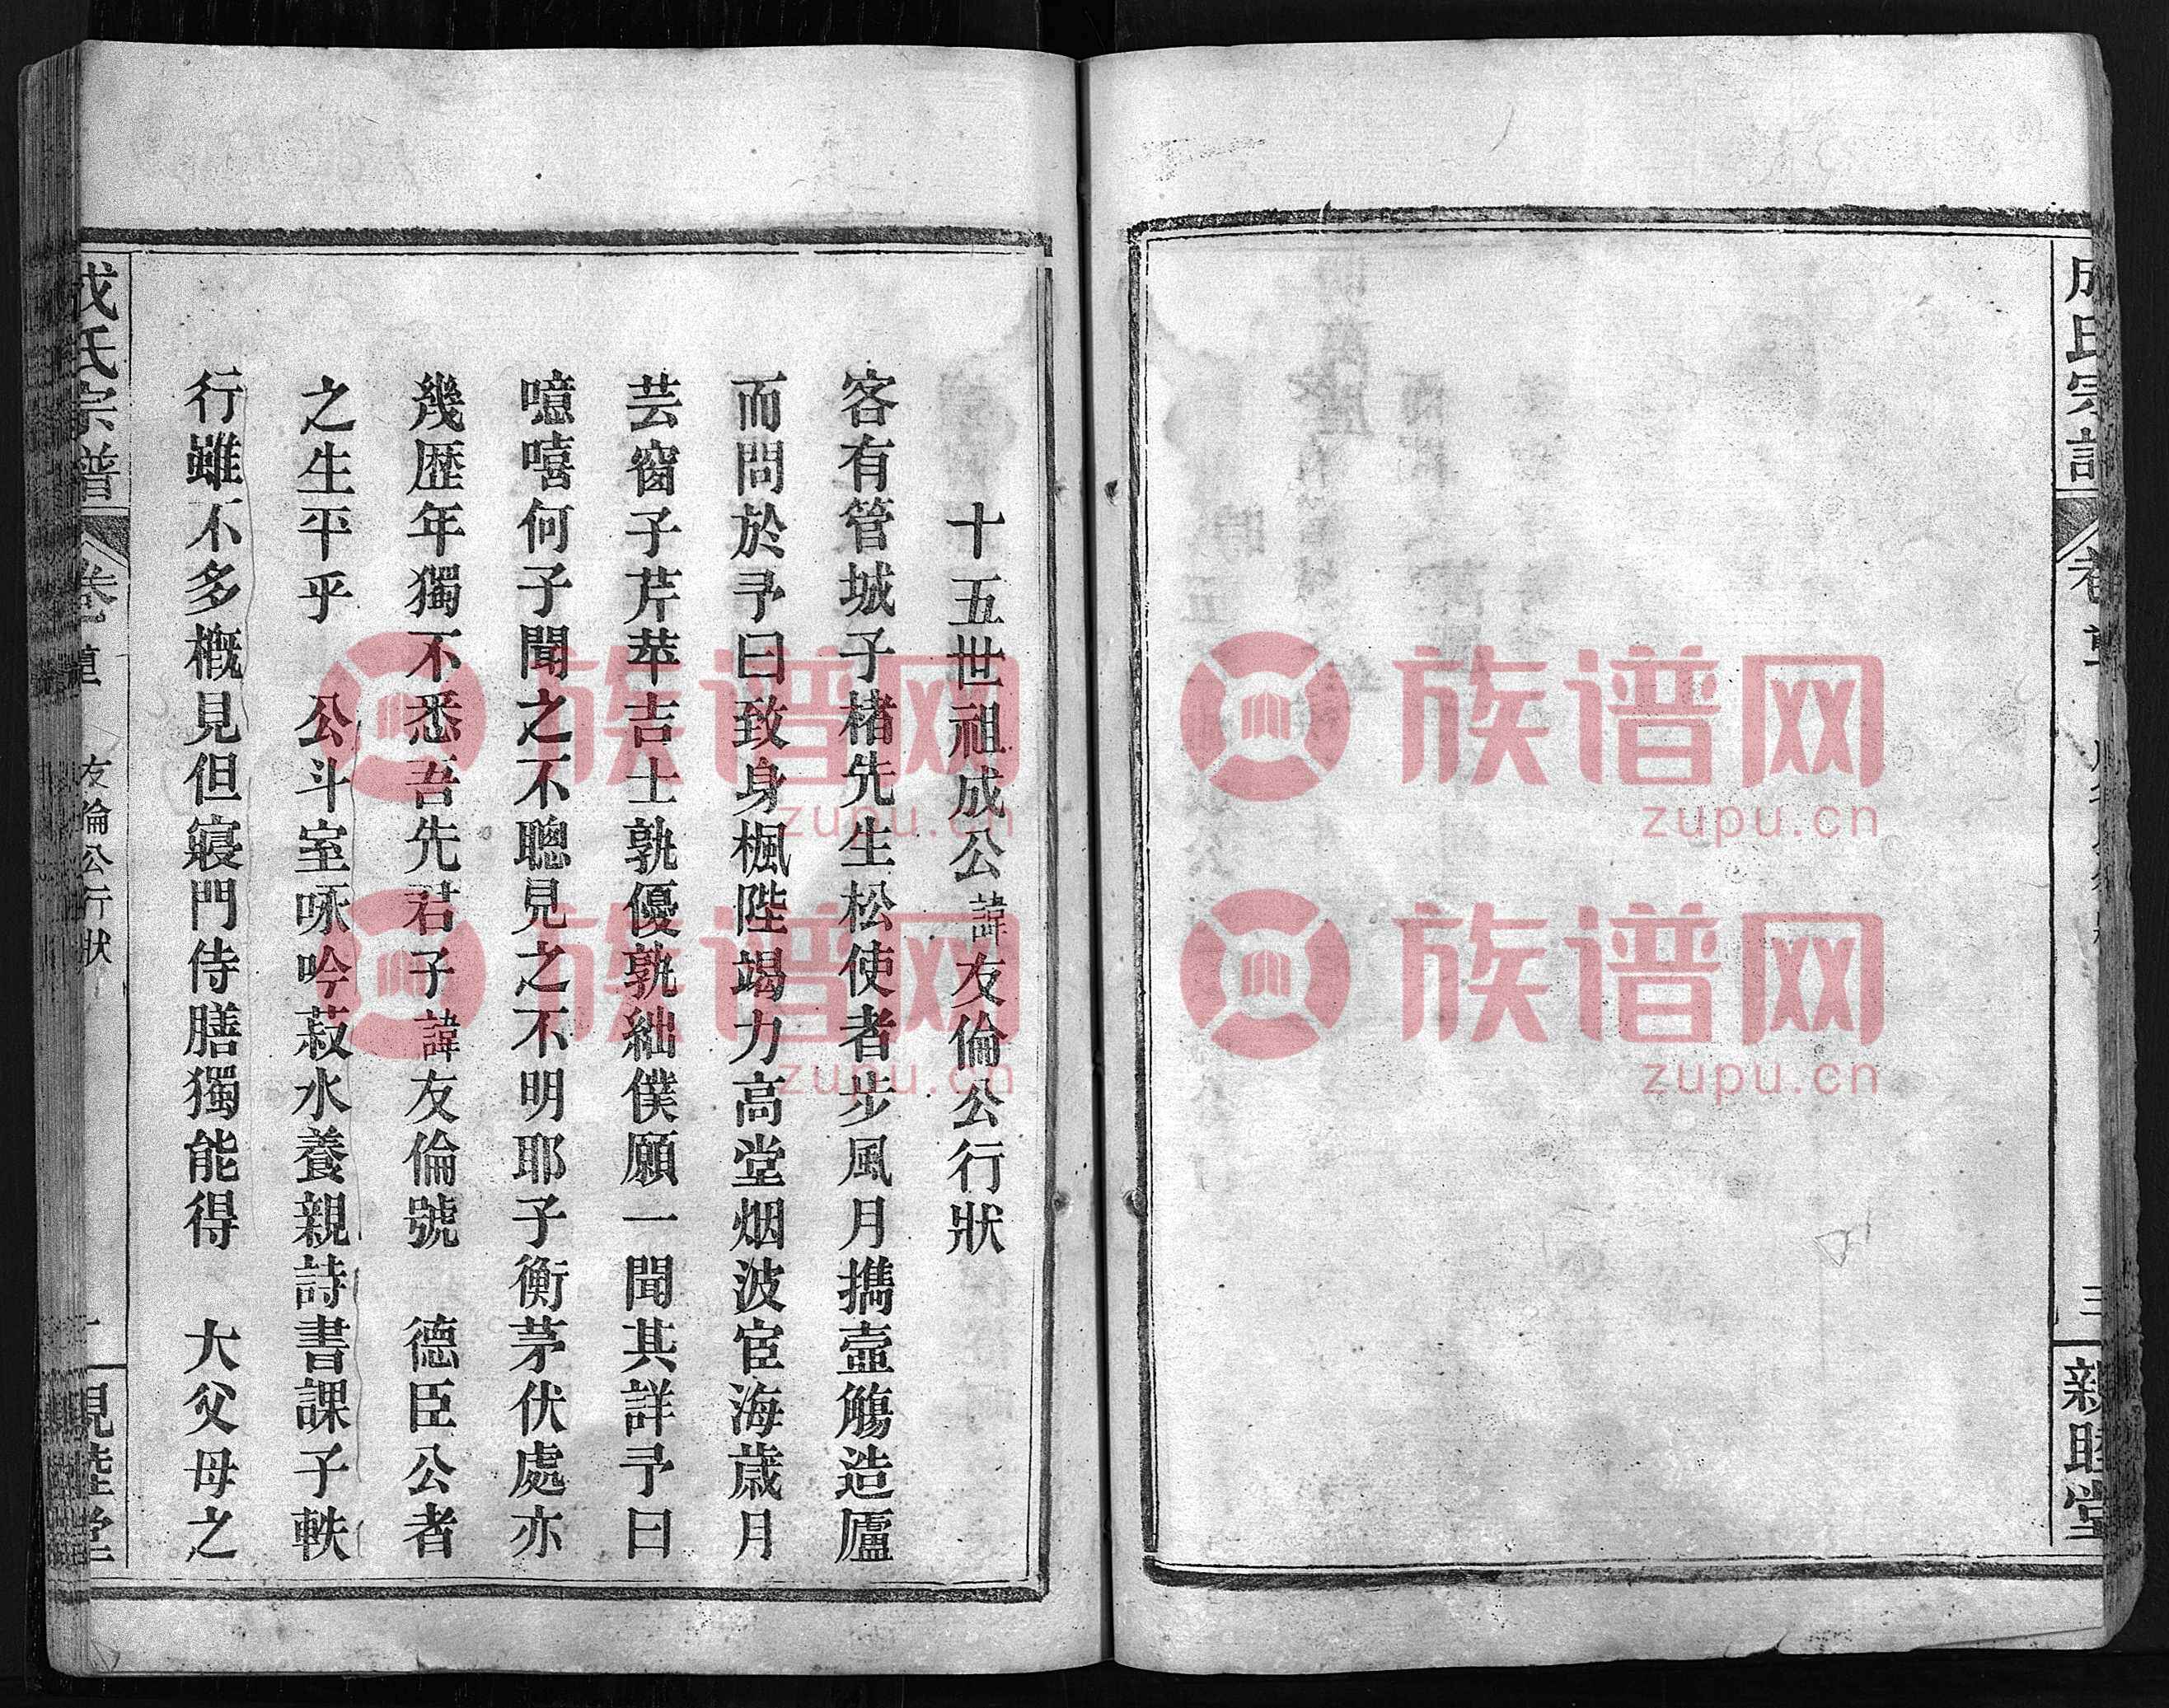 成氏宗譜
三
親睦堂
十五世祖成公諱友倫公行狀
客有管城子楮先生松使者步風月攜壺觴造廬
而問於予曰致身楓陛竭力高堂烟波宦海歲月
芸窗子芹苹吉士孰優孰絀僕願一聞其詳予曰
噫嘻何子聞之不聰見之不明耶子衡茅伏處亦
幾歷年獨不悉吾先君子諱友倫號　德臣公者
之生平乎　公斗室咏吟菽水養親詩書課子軼
行雖不多概見但寢門侍膳獨能得　大父母之
成氏宗譜
卷
友倫公行狀
親睦堂
族谱网
zupu.cn
族谱网
zupu.cn
族谱网
zupu.cn
族谱网
zupu.cn